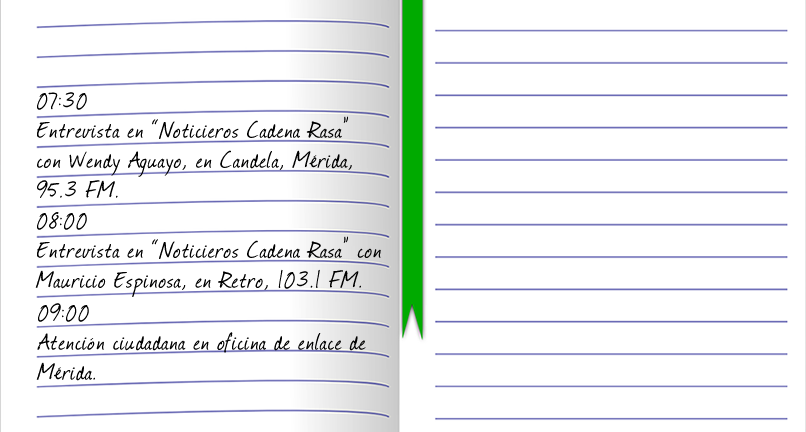 07:30
Entrevista en "Noticieros Cadena Rasa"
con Wendy Aguayo, en Candela, Mérida,
95.3 FM.
08:00
Entrevista en "Noticieros Cadena Rasa" con
Mauricio Espinosa, en Retro, 103.1 FM.
09:00
Atención ciudadana en oficina de enlace de
Mérida.